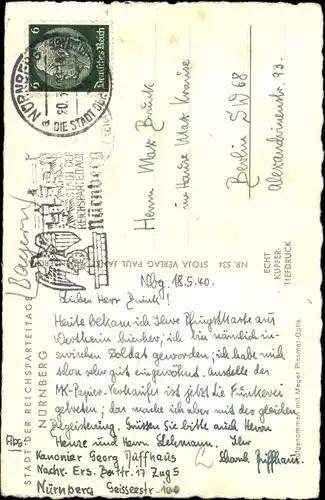 6 6
Deutsches Reich
NÜRNBERG
a
20.5.
DIE STADT DER
DIE STADT DER
REICHSPARTEITAGE
Nürnberg
Bayern!
Herrn Max Brink
im Hause Max Krause
Berlin SW 68
Alexandrinenstr. 93.
NR. 534 STOJA VERLAG PAUL
ECHT
KUPFER-
TIEFDRUCK
Aufgenommen mit Meyer Plasmat-Optik
STADT DER REICHSPARTEITAGE
NÜRNBERG
Nbg. 18.5.40.
Lieber Herr Brink!
Heute bekam ich Ihre Pfingstkarte aus
Wertheim hierher; ich bin nämlich in-
zwischen Soldat geworden; ich hab mich
schon sehr gut eingewöhnt. Anstelle des
MK-Papier-Verkäufers ist jetzt die Funkerei
getreten; das mache ich aber mit der gleichen
Begeisterung. Grüssen Sie bitte auch Herrn
Heinze und Herrn Liekmann. Ihr
Abs.
Kanonier Georg Püffhaus
Nachr. Ers. Battr. 17 Zug 5
Nürnberg Geisseestr. 100
Püffhaus.